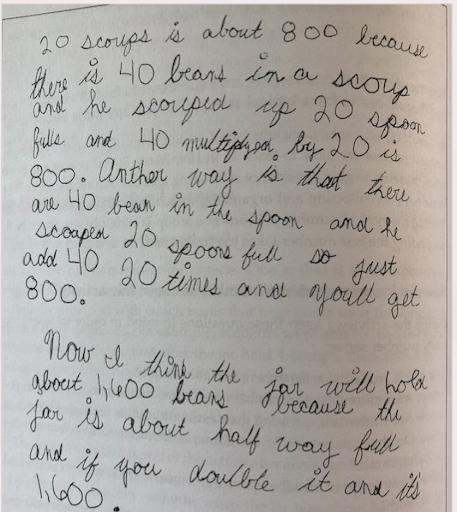 20 scoups is about 800 because
there is 40 beans in a scoup
and he scouped up 20 spoon
fulls and 40 multiplyed by 20 is
800. Anther way is that there
are 40 bean in the spoon and he
scoaped 20 spoons full so just
add 40 20 times and youll get
800.
Now I think the jar will hold
about 1,600 beans because the
jar is about half way full
and if you doulble it and it's
1,600.